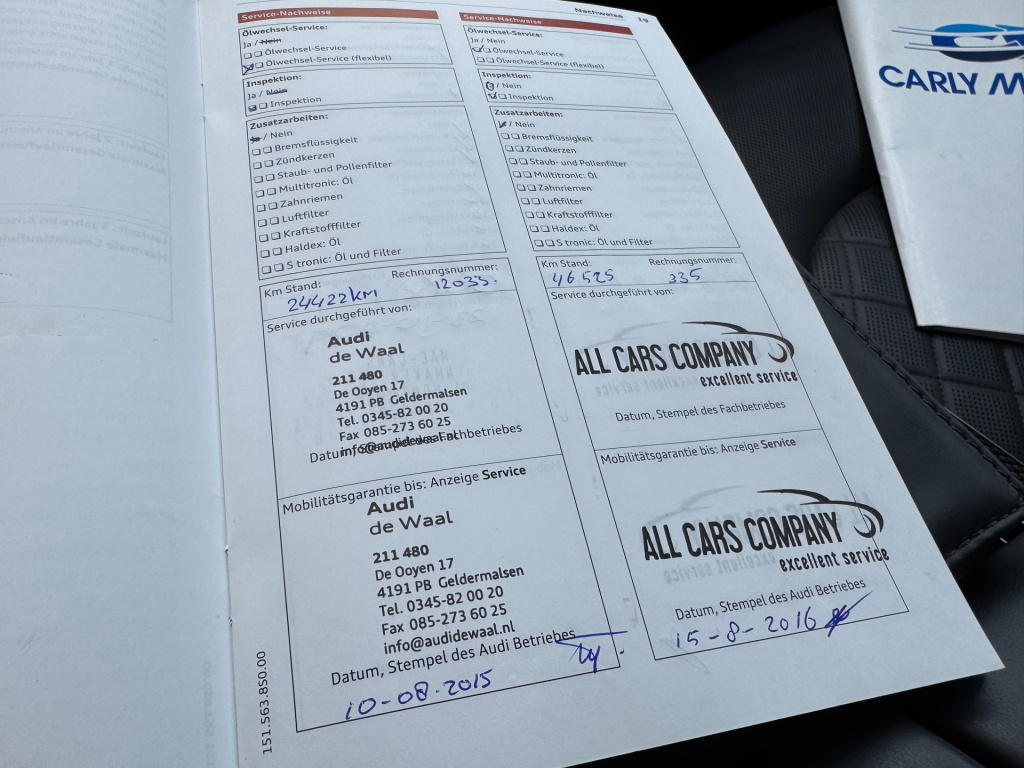 Nachweise 19
Service-Nachweise
Ölwechsel-Service:
Ja / Nein
Ölwechsel-Service
Ölwechsel-Service (flexibel)
Inspektion:
Ja / Nein
Inspektion
Zusatzarbeiten:
/ Nein
Bremsflüssigkeit
Zündkerzen
Staub- und Pollenfilter
Multitronic: Öl
Zahnriemen
Luftfilter
Kraftstofffilter
Haldex: Öl
S tronic: Öl und Filter
Km Stand: Rechnungsnummer:
24422KM 12033.
Service durchgeführt von:
Audi
de Waal
211 480
De Ooyen 17
4191 PB Geldermalsen
Tel. 0345-82 00 20
Fax 085-273 60 25
info@audidewaal.nl
Datum, Stempel des Fachbetriebes
Mobilitätsgarantie bis: Anzeige Service
Audi
de Waal
211 480
De Ooyen 17
4191 PB Geldermalsen
Tel. 0345-82 00 20
Fax 085-273 60 25
info@audidewaal.nl
Datum, Stempel des Audi Betriebes
10-08-2015
151.563.850.00
Service-Nachweise
Ölwechsel-Service:
Ja / Nein
Ölwechsel-Service
Ölwechsel-Service (flexibel)
Inspektion:
/ Nein
Inspektion
Zusatzarbeiten:
/ Nein
Bremsflüssigkeit
Zündkerzen
Staub- und Pollenfilter
Multitronic: Öl
Zahnriemen
Luftfilter
Kraftstofffilter
Haldex: Öl
S tronic: Öl und Filter
Km Stand: Rechnungsnummer:
46525 335
Service durchgeführt von:
ALL CARS COMPANY
excellent service
Datum, Stempel des Fachbetriebes
Mobilitätsgarantie bis: Anzeige Service
ALL CARS COMPANY
excellent service
Datum, Stempel des Audi Betriebes
15-8-2016
CARLY M